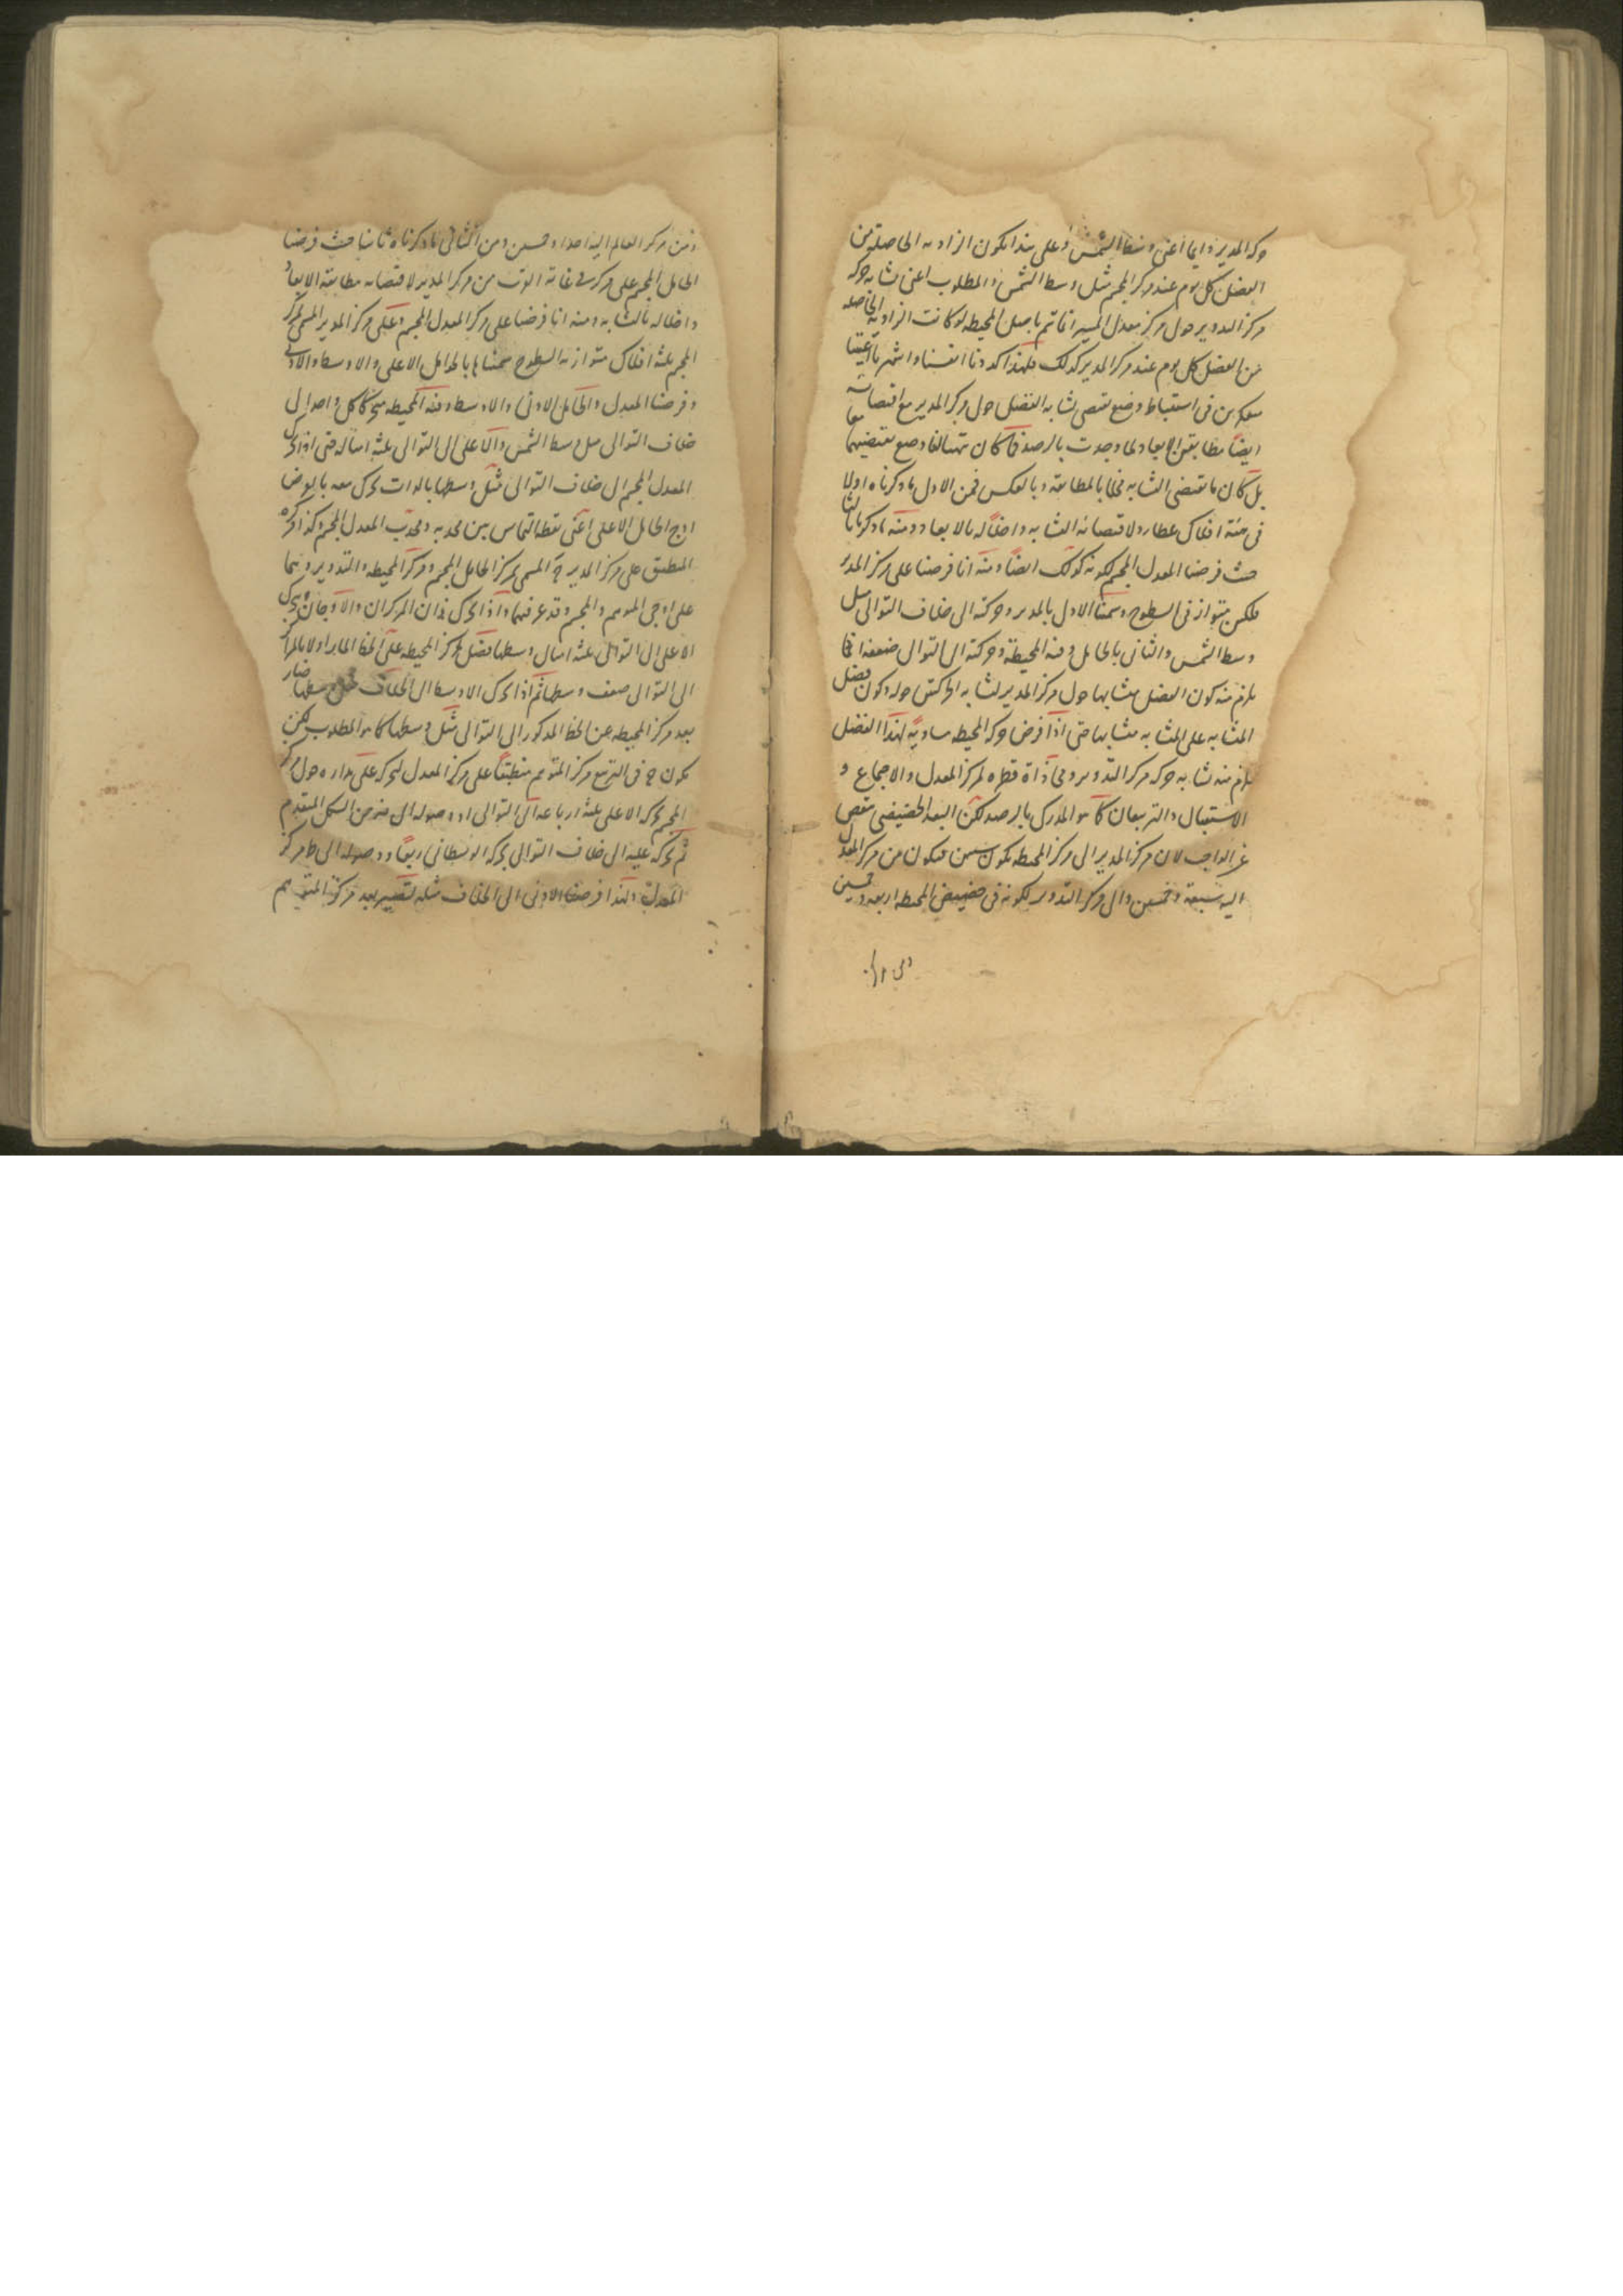 حركة المدير دائما اعنى وسط الشمس وعلى هذا يكون الزاوية الحاصلة من
الفضل كل يوم عند مركز المجسم مثل وسط الشمس والمطلوب اعنى تشابه حركة
مركز التدوير حول مركز معدل المسير انما تم باصل المحيطة لو كانت الزاوية الحاصلة
من الفضل كل يوم عند مركز المدير كذلك فلهذا اكددنا انفسنا واشهرنا اعيننا
متفكرين فى استنباط وضع يقتضى تشابه الفضل حول مركز المدير مع اقتضائه
ايضا مطابقة الابعاد لما وجدت بالرصد فما كان تهيأ لنا وضع يقتضيهما معا
بل كان ما يقتضى التشابه مخلا بالمطابقة وبالعكس فمن الاول ما ذكرناه اولا
فى هيئة افلاك عطارد لاقتضائه التشابه واخلاله بالابعاد ومنه ما ذكرنا ثالثا
حيث فرضنا المعدل المجسم لكونه كذلك ايضا ومنه انا فرضنا على مركز المدير
فلكين متوازنى السطوح وسمينا الاول بالمدير وحركته الى خلاف التوالى مثل
وسط الشمس والثانى بالحامل وفيه المحيطة وحركته الى التوالى ضعفه انما
يلزم منه كون الفضل متشابها حول مركز المدير لتشابه الحركتين حوله وكون فضل
المتشابه على المتشابه متشابها حتى اذا فرض حركة المحيط مساوية لهذا الفضل
يلزم منه تشابه حركة مركز التدوير ومحاذاة قطره لمركز المعدل والاجماع و
الاستقبال والتربيعان كما هو المدرك بالرصد لكن البعد الحضيضى ينقص
عن الواجب لان مركز المدير الى مركز المحيطة يكون ستين فيكون من مركز المعدل
اليه سبعة وخمسين والى مركز التدوير لكونه فى حضيض المحيطة اربعة وخمسين
ومن مركز العالم اليه احدا وخمسين ومن الثانى ما ذكرناه ثانيا حيث فرضنا
الحامل المجسم على مركز فى غاية القرب من مركز المدير لاقتضائه مطابقة الابعاد
واخلاله بالتشابه ومنه انا فرضنا على مركز المعدل المجسم وعلى مركز المدير المسمى بمركز
المجسم ثلثة افلاك متوازية السطوح سميناها بالحوامل الاعلى والاوسط والادنى
وفرضنا المعدل والحامل الادنى والاوسط وفيه المحيطة متحركا كل واحد الى
خلاف التوالى مثل وسط الشمس والاعلى الى التوالى ثلثة امثاله حتى اذا تحرك
المعدل المجسم الى خلاف التوالى مثل وسطها بالذات تحرك معه بالعرض
اوج الحامل الاعلى اعنى نقطة التماس بين محدبه ومحدب المعدل المجسم وكذا مركزه
المنطبق على مركز المدير المسمى بمركز الحامل المجسم ومركز المحيطة والتدوير وهما
على اوجى الموهم والمجسم وقد عرفتهما واذا تحرك هذان المركزان والاوجان تحرك
الاعلى الى التوالى ثلثة امثال وسطها يفضل مركز المحيطة على الخط المار اولا بالمراكز
الى التوالى ضعف وسطها ثم اذا تحرك الاوسط الى الخلاف وسطها صار
بعد مركز المحيطة عن الخط المذكور الى التوالى مثل وسطها كما هو المطلوب لكن
يكون فى التربيع مركز المتوهم منطبقا على مركز المعدل لتحركه على مداره حول مركز
المجسم بحركة الاعلى ثلثة ارباعه الى التوالى ووصوله الى من الشكل المتقدم
ثم تحركه عليه الى خلاف التوالى بحركة الوسطانى ربعا ووصوله الى ط مركز
المعدل ولهذا فرضنا الادنى الى الخلاف مثله لتصيير بعد مركز المتوهم